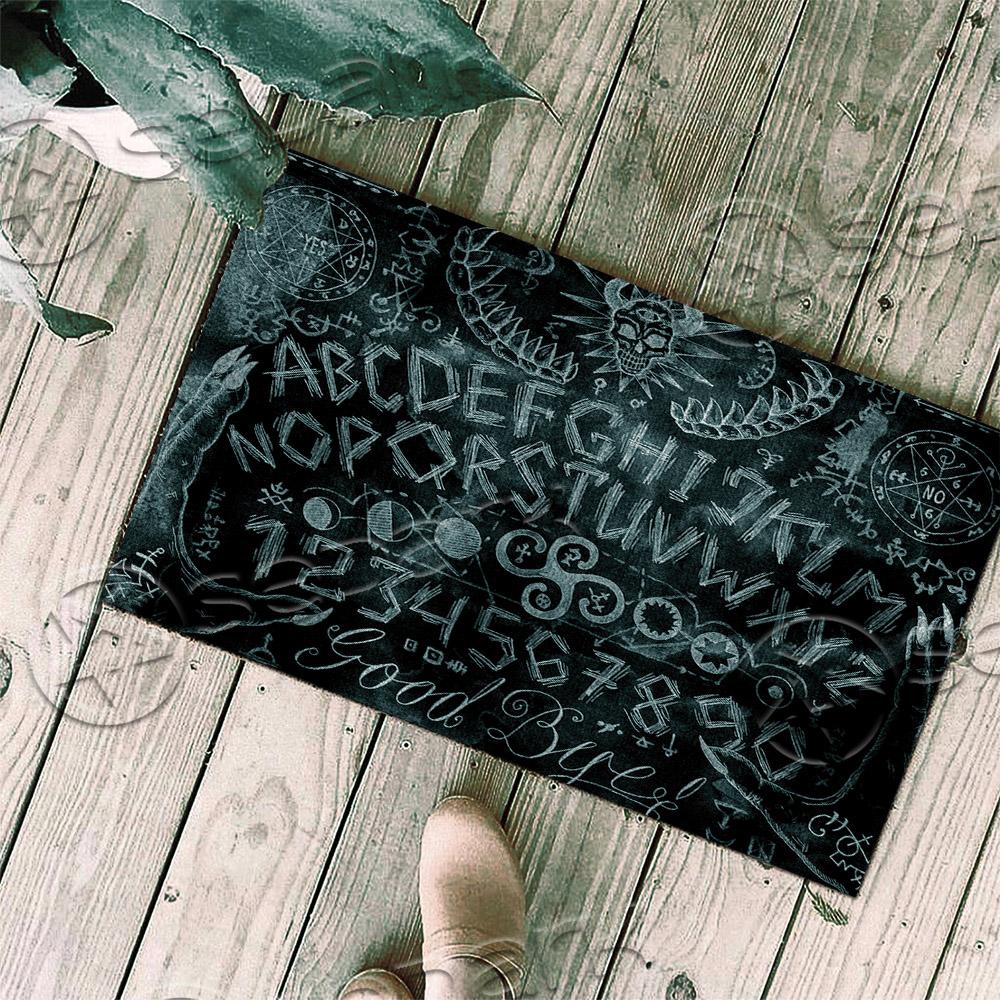 YES
ABCDEFGHIJKLM
NOPQRSTUVWXYZ
NO
1234567890
Good Bye!